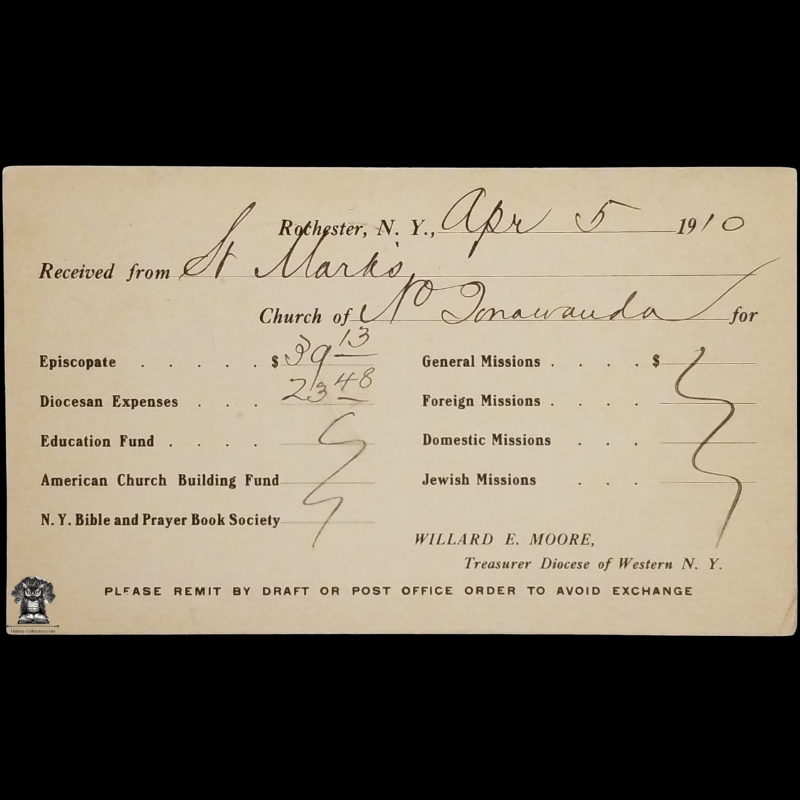 Rochester, N. Y., Apr 5 1910
Received from St Mark's
Church of No Tonawanda for
Episcopate . . . . . $ 39 13
Diocesan Expenses . . . 23 48
Education Fund . . . .
American Church Building Fund
N. Y. Bible and Prayer Book Society
General Missions . . . . $
Foreign Missions . . . .
Domestic Missions . . .
Jewish Missions . . .
WILLARD E. MOORE,
Treasurer Diocese of Western N. Y.
PLEASE REMIT BY DRAFT OR POST OFFICE ORDER TO AVOID EXCHANGE